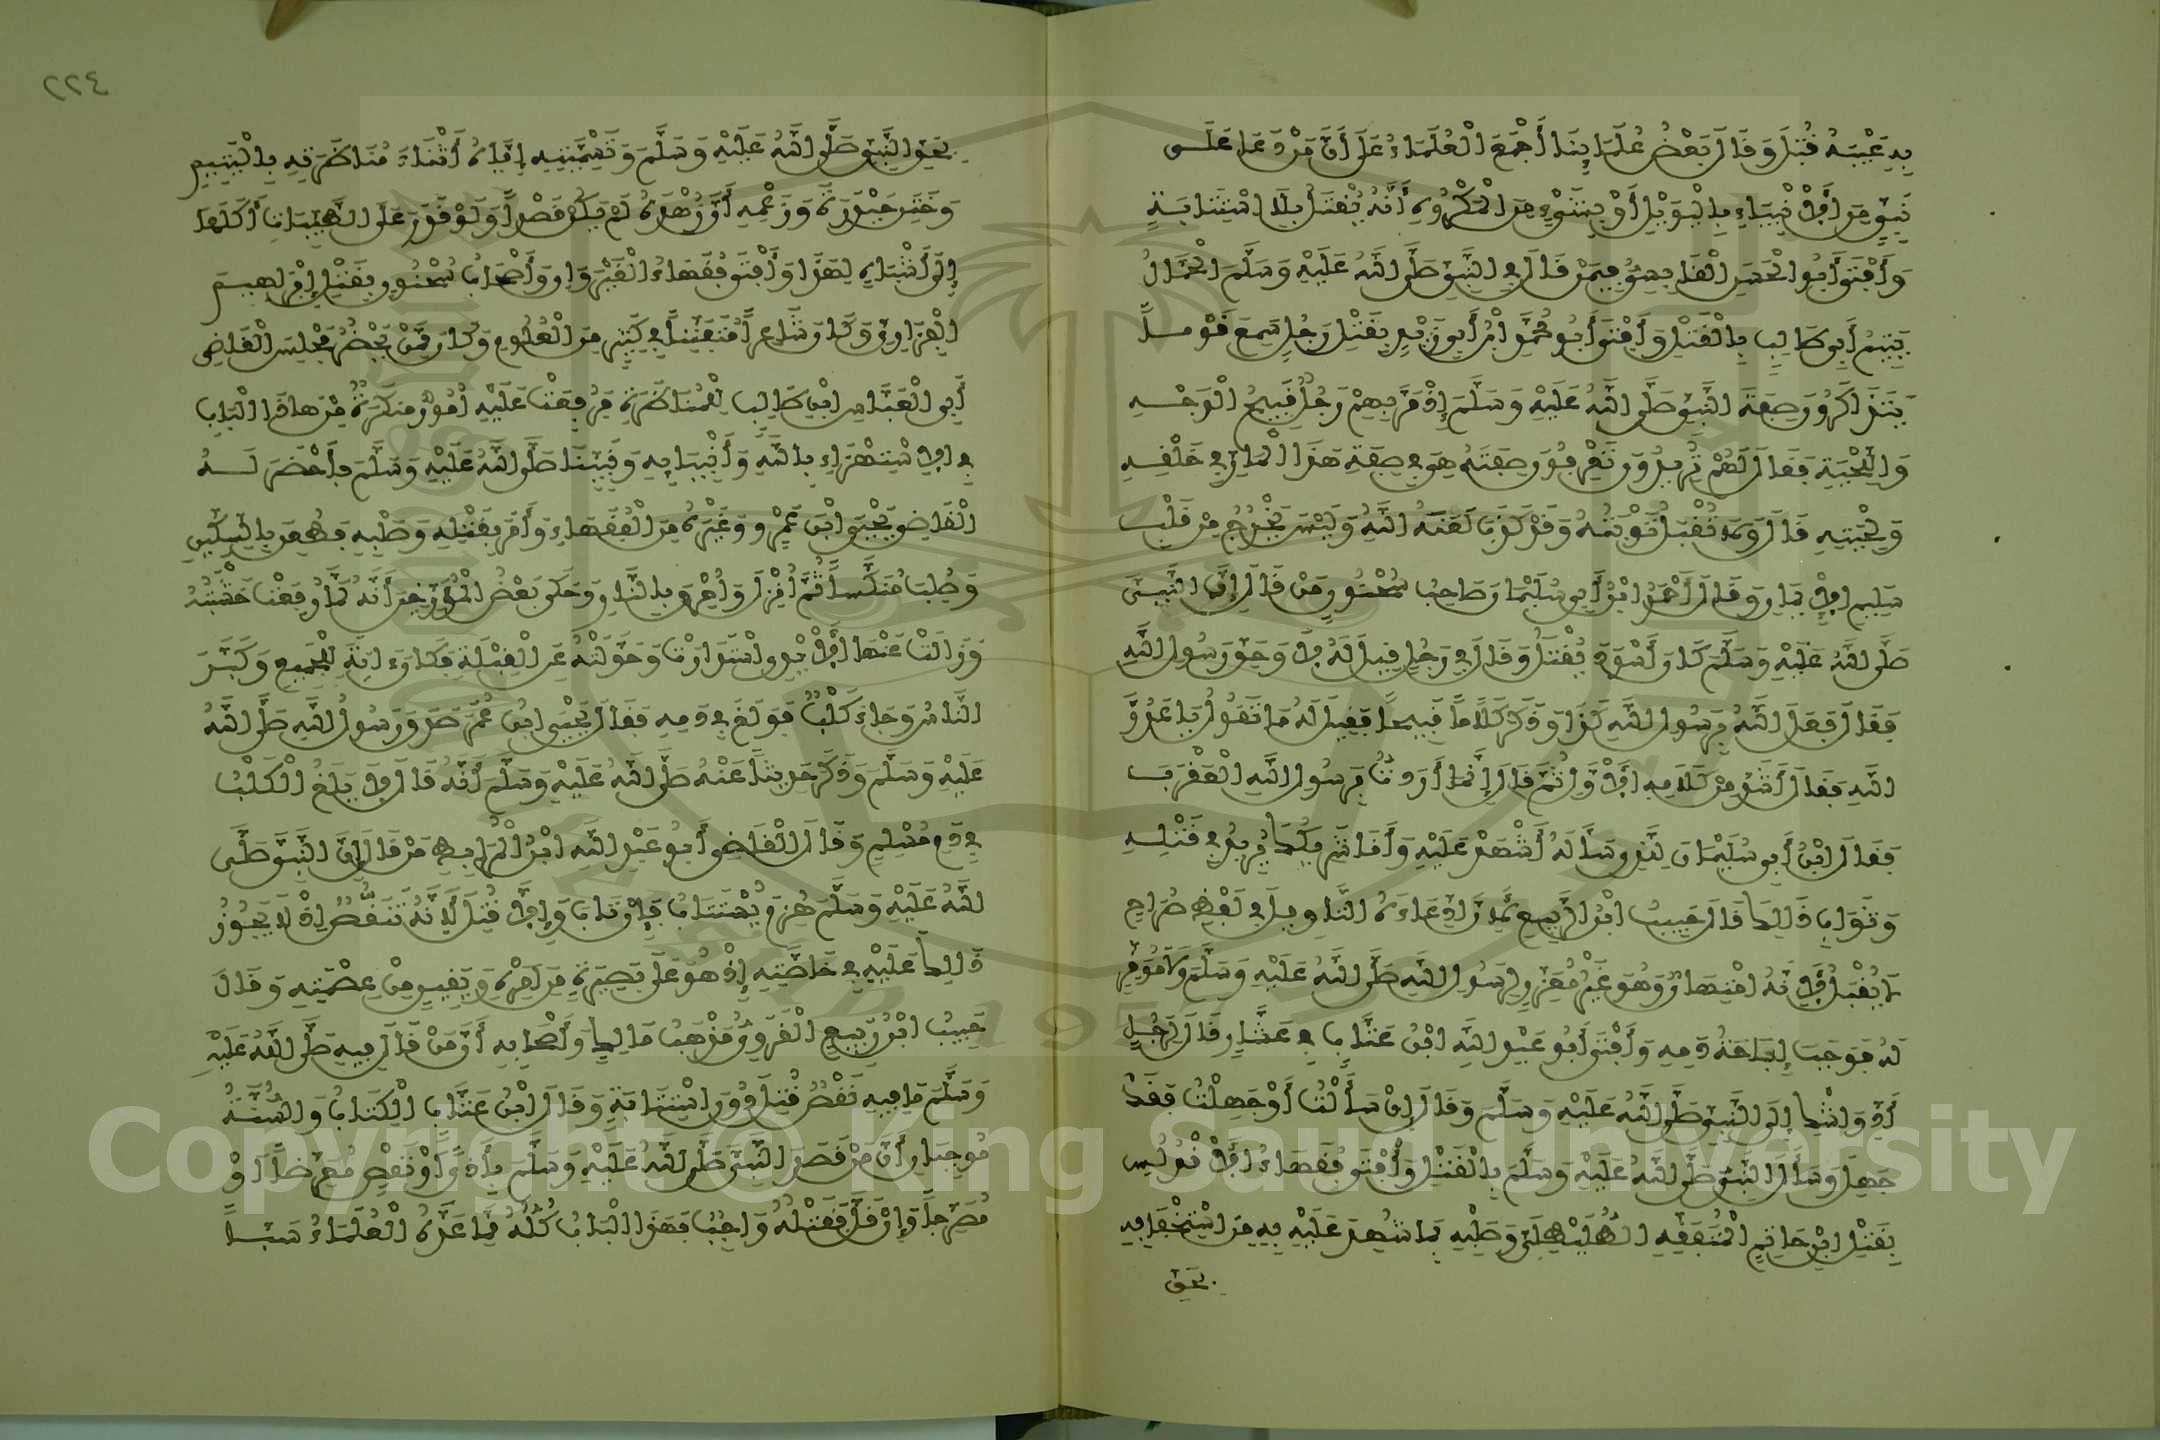 بِهِ عَيْبَهُ قُتِلَ وَقَالَ بَعْضُ عُلَمَائِنَا أَجْمَعَ الْعُلَمَاءُ عَلَى أَنَّ مَنْ دَعَا عَلَى
نَبِيٍّ مِنَ الْأَنْبِيَاءِ بِالْوَيْلِ أَوْ بِشَيْءٍ مِنَ الْمَكْرُوهِ أَنَّهُ يُقْتَلُ بِلَا اسْتِتَابَةٍ
وَأَفْتَى أَبُو الْحَسَنِ الْقَابِسِيُّ فِيمَنْ قَالَ فِي النَّبِيِّ صَلَّى اللَّهُ عَلَيْهِ وَسَلَّمَ الْحَمَّالُ
يَتِيمُ أَبِي طَالِبٍ بِالْقَتْلِ وَأَفْتَى أَبُو مُحَمَّدِ ابْنُ أَبِي زَيْدٍ بِقَتْلِ رَجُلٍ سَمِعَ قَوْماً
يَتَذَاكَرُونَ صِفَةَ النَّبِيِّ صَلَّى اللَّهُ عَلَيْهِ وَسَلَّمَ إِذْ مَرَّ بِهِمْ رَجُلٌ قَبِيحُ الْوَجْهِ
وَاللِّحْيَةِ فَقَالَ لَهُمْ تُرِيدُونَ تَعْرِفُونَ صِفَتَهُ هِيَ فِي صِفَةِ هَذَا الْمَارِّ فِي خَلْقِهِ
وَلِحْيَتِهِ قَالَ وَلَا تُقْبَلُ تَوْبَتُهُ وَقَدْ كَذَبَ لَعَنَهُ اللَّهُ وَلَيْسَ يَخْرُجُ مِنْ قَلْبٍ
سَلِيمِ الْإِيمَانِ وَقَالَ أَحْمَدُ ابْنُ أَبِي سُلَيْمَانَ صَاحِبُ سُحْنُونٍ مَنْ قَالَ إِنَّ النَّبِيَّ
صَلَّى اللَّهُ عَلَيْهِ وَسَلَّمَ كَانَ أَسْوَدَ يُقْتَلُ وَقَالَ فِي رَجُلٍ قِيلَ لَهُ لَا وَحَقِّ رَسُولِ اللَّهِ
فَقَالَ فَعَلَ اللَّهُ بِرَسُولِ اللَّهِ كَذَا وَذَكَرَ كَلَاماً قَبِيحاً فَقِيلَ لَهُ مَا تَقُولُ يَا عَدُوَّ
اللَّهِ فَقَالَ أَشَدَّ مِنْ كَلَامِهِ الْأَوَّلِ ثُمَّ قَالَ إِنَّمَا أَرَدْتُ بِرَسُولِ اللَّهِ الْعَقْرَبَ
فَقَالَ ابْنُ أَبِي سُلَيْمَانَ لِلَّذِي سَأَلَهُ أَشْهِدْ عَلَيْهِ وَأَنَا شَرِيكُكَ يُرِيدُ فِي قَتْلِهِ
وَثَوَابِ ذَلِكَ قَالَ حَبِيبُ ابْنُ الرَّبِيعِ لِأَنَّ ادِّعَاءَهُ التَّأْوِيلَ فِي لَفْظٍ صُرَاحٍ
لَا يُقْبَلُ لِأَنَّهُ امْتِهَانٌ وَهُوَ غَيْرُ مُعَزِّرٍ لِرَسُولِ اللَّهِ صَلَّى اللَّهُ عَلَيْهِ وَسَلَّمَ وَلَا مُوَقِّرٍ
لَهُ فَوَجَبَ إِبَاحَةُ دَمِهِ وَأَفْتَى أَبُو عَبْدِ اللَّهِ ابْنُ عَتَّابٍ فِي عَشَّارٍ قَالَ لِرَجُلٍ
أَدِّ وَاشْكُ إِلَى النَّبِيِّ صَلَّى اللَّهُ عَلَيْهِ وَسَلَّمَ وَقَالَ إِنْ سَأَلْتُ أَوْ جَهِلْتُ فَقَدْ
جَهِلَ وَسَأَلَ النَّبِيُّ صَلَّى اللَّهُ عَلَيْهِ وَسَلَّمَ بِالْقَتْلِ وَأَفْتَى فُقَهَاءُ الْأَنْدُلُسِ
بِقَتْلِ ابْنِ حَاتِمٍ الْمُتَفَقِّهِ الطُّلَيْطِلِيِّ وَصَلْبِهِ بِمَا شُهِدَ عَلَيْهِ بِهِ مِنَ اسْتِخْفَافِهِ
بحق
٢٢٤
بِحَقِّ النَّبِيِّ صَلَّى اللَّهُ عَلَيْهِ وَسَلَّمَ وَتَسْمِيَتِهِ إِيَّاهُ أَثْنَاءَ مُنَاظَرَتِهِ بِالْيَتِيمِ
وَخَتَنِ حَيْدَرَةَ وَزَعْمِهِ أَنَّ زُهْدَهُ لَمْ يَكُنْ قَصْداً وَلَوْ قَدَرَ عَلَى الطَّيِّبَاتِ أَكَلَهَا
إِلَى أَشْبَاهٍ لِهَذَا وَأَفْتَى فُقَهَاءُ الْقَيْرَوَانِ وَأَصْحَابُ سُحْنُونٍ بِقَتْلِ إِبْرَاهِيمَ
الْفَزَارِيِّ وَكَانَ شَاعِراً مُتَفَنِّناً فِي كَثِيرٍ مِنَ الْعُلُومِ وَكَانَ مِمَّنْ يَحْضُرُ مَجْلِسَ الْقَاضِي
أَبِي الْعَبَّاسِ ابْنِ طَالِبٍ لِلْمُنَاظَرَةِ فَرُفِعَتْ عَلَيْهِ أُمُورٌ مُنكَرَةٌ مِنْ هَذَا الْبَابِ
فِي الِاسْتِهْزَاءِ بِاللَّهِ وَأَنْبِيَائِهِ وَنَبِيِّنَا صَلَّى اللَّهُ عَلَيْهِ وَسَلَّمَ فَأَحْضَرَ لَهُ
الْقَاضِي يَحْيَى ابْنَ عُمَرَ وَغَيْرَهُ مِنَ الْفُقَهَاءِ وَأَمَرَ بِقَتْلِهِ وَصَلْبِهِ فَطُعِنَ بِالسِّكِّينِ
وَصُلِبَ مُنَكَّساً ثُمَّ أُنْزِلَ وَأُحْرِقَ بِالنَّارِ وَحَكَى بَعْضُ الْمُؤَرِّخِينَ أَنَّهُ لَمَّا رُفِعَتْ خَشَبَتُهُ
وَزَالَتْ عَنْهَا الْأَيْدِي اسْتَدَارَتْ وَحَوَّلَتْهُ عَنِ الْقِبْلَةِ فَكَانَ آيَةً لِلْجَمِيعِ وَكَبَّرَ
النَّاسُ وَجَاءَ كَلْبٌ فَوَلَغَ فِي دَمِهِ فَقَالَ يَحْيَى ابْنُ عُمَرَ صَدَقَ رَسُولُ اللَّهِ صَلَّى اللَّهُ
عَلَيْهِ وَسَلَّمَ وَذَكَرَ حَدِيثاً عَنْهُ صَلَّى اللَّهُ عَلَيْهِ وَسَلَّمَ أَنَّهُ قَالَ لَا يَلَغُ الْكَلْبُ
فِي دَمِ مُسْلِمٍ وَقَالَ الْقَاضِي أَبُو عَبْدِ اللَّهِ ابْنُ الْمُرَابِطِ مَنْ قَالَ إِنَّ النَّبِيَّ صَلَّى
اللَّهُ عَلَيْهِ وَسَلَّمَ هُزِمَ يُسْتَتَابُ فَإِنْ تَابَ وَإِلَّا قُتِلَ لِأَنَّهُ تَنَقُّصٌ إِذْ لَا يَجُوزُ
ذَلِكَ عَلَيْهِ فِي خَاصَّتِهِ إِذْ هُوَ عَلَى بَصِيرَةٍ مِنْ أَمْرِهِ وَيَقِينٍ مِنْ عِصْمَتِهِ وَقَالَ
حَبِيبُ ابْنُ رَبِيعٍ الْقَرَوِيُّ مَذْهَبُ مَالِكٍ وَأَصْحَابِهِ أَنَّ مَنْ قَالَ فِيهِ صَلَّى اللَّهُ عَلَيْهِ
وَسَلَّمَ مَا فِيهِ نَقْصٌ قُتِلَ دُونَ اسْتِتَابَةٍ وَقَالَ ابْنُ عَتَّابٍ الْكِتَابُ وَالسُّنَّةُ
مُوجِبَانِ أَنَّ مَنْ قَصَدَ النَّبِيَّ صَلَّى اللَّهُ عَلَيْهِ وَسَلَّمَ بِأَذًى أَوْ نَقْصٍ مُعَرِّضاً أَوْ
مُصَرِّحاً وَإِنْ قَلَّ فَقَتْلُهُ وَاجِبٌ فَهَذَا الْبَابُ كُلُّهُ مِمَّا عَدَّهُ الْعُلَمَاءُ سَبّاً
Copyright © King Saud University